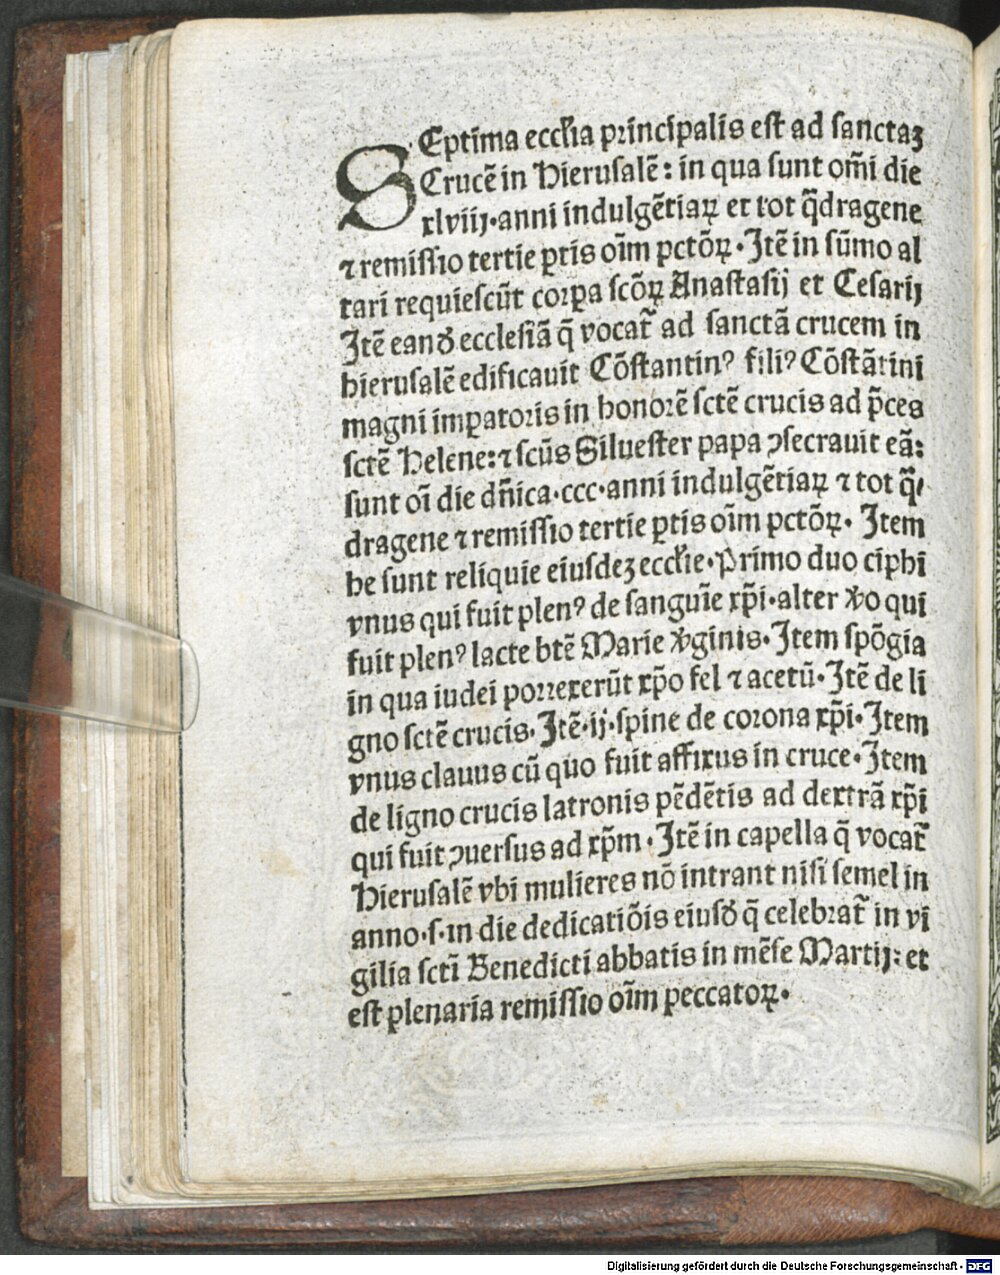 SEptima eccl̃ia principalis est ad sanctaʒ
Crucē in Hierusalē: in qua sunt om̄i die
xlviij·anni indulgētiaꝝ et tot q̄dragene
⁊ remissio tertie ꝑtis oīm pctōꝝ·Itē in sūmo al
tari requiescūt corꝑa scōꝝ Anastasij et Cesarij
Itē eanđ ecclesiā q̄ vocat̄ ad sanctā crucem in
hierusalē edificauit Cōstantinꝰ filiꝰ Cōstātini
magni imꝑatoris in honorē sctē crucis ad p̄ces
sctē Helene: ⁊ scūs Siluester papa ꝯsecrauit eā:
sunt oī die dn̄ica·ccc·anni indulgētiaꝝ ⁊ tot q̄/
dragene ⁊ remissio tertie ꝑtis oīm pctōꝝ· Item
he sunt reliquie eiusdeʒ eccl̃ie·Primo duo ciphi
vnus qui fuit plenꝰ de sanguīe xp̄i·alter v̾o qui
fuit plenꝰ lacte btē Marie v̾ginis·Item spōgia
in qua iudei porrexerūt xp̄o fel ⁊ acetū·Itē de li
gno sctē crucis. Itē·ij·spine de corona xp̄i·Item
vnus clauus cū quo fuit affixus in cruce·Item
de ligno crucis latronis pēdētis ad dextrā xp̄i
qui fuit ꝯuersus ad xp̄m·Itē in capella q̄ vocat̄
Hierusalē vbi mulieres nō intrant nisi semel in
anno·s·in die dedicatiōis eiusđ q̄ celebrat̄ in vi
gilia sctī Benedicti abbatis in mēse Martij: et
est plenaria remissio oīm peccatoꝝ·
Digitalisierung gefördert durch die Deutsche Forschungsgemeinschaft - DFG